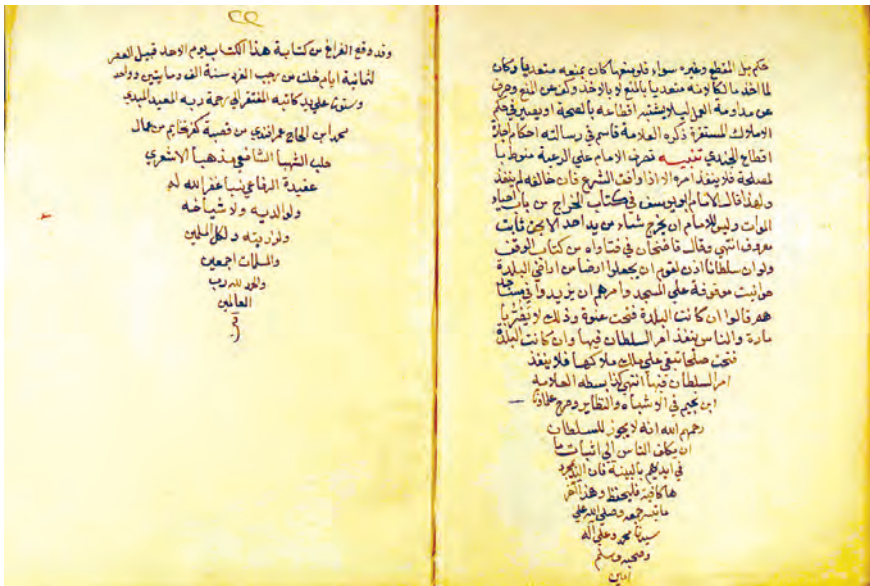 حكم بل المقطع وغيره سواء فلو منعها كان بمنعه متعديا وكان
لما اخذ مالكا ونه متعديا بالمنع لو بالاخذ وكف عن المنع وصرف
عن مداومة العمل ليلا يشتبه اقطاعه بالصحة او يصير في حكم
الاملاك المستقرة ذكره العلامة قاسم في رسالته احكام اجارة
اقطاع الجندي تنبيه تصرف الامام على الرعية منوط با
لمصلحة فلا ينفذ امره الا اذا وافق الشرع فان خالفه لم ينفذ
ولهذا قال الامام ابو يوسف في كتاب الخراج من باب احياء
الموات وليس للامام ان يخرج شياء من يد احد الا بحق ثابت
معروف انتهى وقال قاضيخان في فتاواه من كتاب الوقف
ولو ان سلطانا اذن لقوم ان يجعلوا ارضا من اراضي البلدة
حوانيت موقوفة على المسجد وامرهم ان يزيدوا في مسجد
هم قالوا ان كانت البلدة فتحت عنوة وذلك لا يضر بالـ
مارة والناس ينفذ امر السلطان فيها وان كانت البلدة
فتحت صلحا تبقى على ملك ملاكها فلا ينفذ
امر السلطان فيها انتهى كذا بسطه العلامه
ابن نجيم في الاشباه والنظاير وصرح علماونا
رحمهم الله انه لا يجوز للسلطان
ان يكلف الناس الى اثبات ما
في ايديهم بالبينة فان اليد بمجرد
ها كافية فليحفظ وهذا اخر
ما تيسر جمعه وصلى الله على
سيدنا محمد وعلى اله
وصحبه وسلم
امين
وقد وقع الفراغ من كتابة هذا الكتاب يوم الاحد قبيل العصر
لثمانية ايام خلت من رجب الفرد سنة الف ومايتين وواحد
وستون على يد كاتبه المفتقر الى رحمة ربه المعيد المبدي
محمد ابن الحاج عمر افندي من قصبة كفر تخاريم من عمال
حلب الشهبا الشافعي مذهبا الاشعري
عقيدة الرفاعي نسبا غفر الله له
ولوالديه ولاشياخه
ولذريته ولكل المسلمين
والمسلمات اجمعين
والحمد لله رب
العالمين